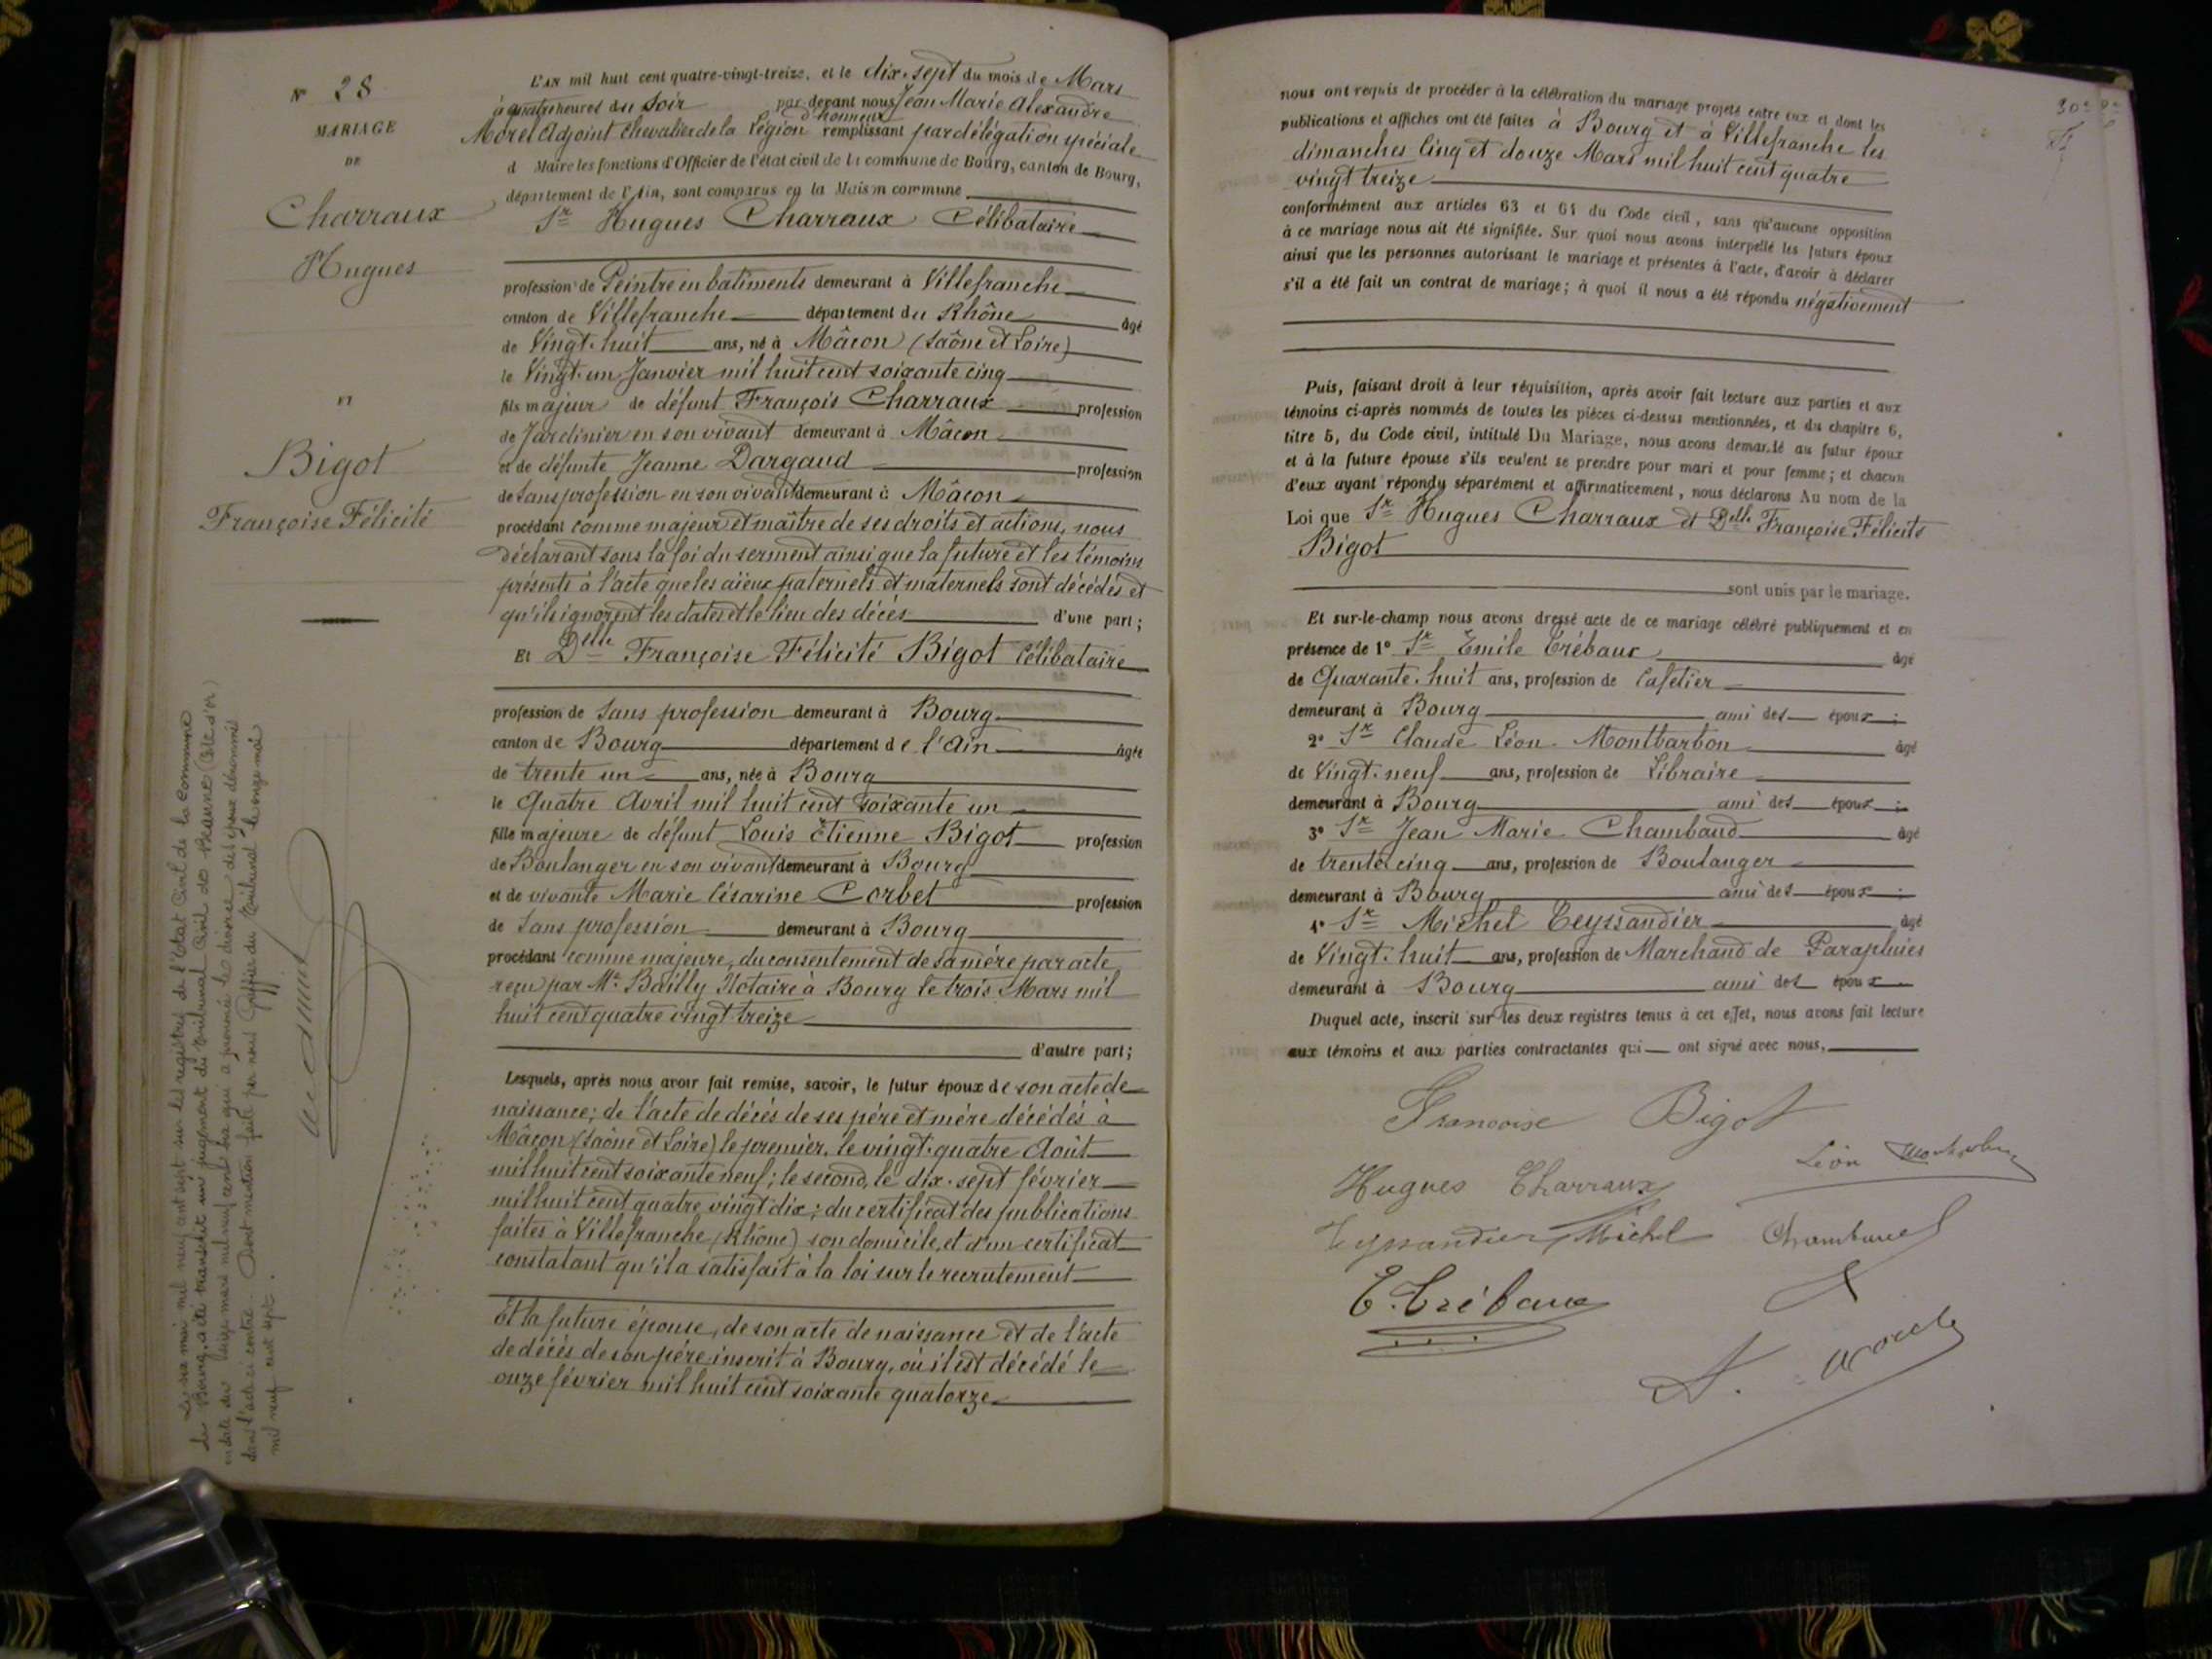 N° 28
MARIAGE
DE
Charraux
Hugues
et
Bigot
Françoise Félicité
Le six mai mil neuf cent sept sur les registres de l'Etat Civil de la Commune
de Bourg, a été transcrit un jugement du tribunal Civil de Beaune (Côte d'or)
en date du seize mars mil neuf cent six qui a prononcé le divorce des époux dénommés
dans l'acte ci contre. Dont mention faite par nous Greffier du Tribunal le onze mai
mil neuf cent sept.
L'AN mil huit cent quatre-vingt-treize, et le dix-sept du mois de Mars
à quatre heures du soir par-devant nous Jean Marie Alexandre
d'honneur
Morel Adjoint Chevalier de la Légion remplissant par délégation spéciale
d Maire les fonctions d'Officier de l'état civil de la commune de Bourg, canton de Bourg,
département de l'Ain, sont comparus en la Maison commune
Sr Hugues Charraux Célibataire
profession de Peintre en batiments demeurant à Villefranche
canton de Villefranche département du Rhône âgé
de Vingt-huit ans, né à Mâcon (Saône et Loire)
le Vingt-un Janvier mil huit cent soixante cinq
fils majeur de défunt François Charraux profession
de Jardinier en son vivant demeurant à Mâcon
et de défunte Jeanne Dargaud profession
de Sans profession en son vivant demeurant à Mâcon
procédant comme majeur et maître de ses droits et actions, nous
déclarant sous la foi du serment ainsi que la future et les témoins
présents à l'acte que les aïeux paternels et maternels sont décédés et
qu'ils ignorent les dates et le lieu des décès d'une part;
Et Delle Françoise Félicité Bigot Célibataire
profession de Sans profession demeurant à Bourg
canton de Bourg département de l'Ain âgée
de trente un ans, née à Bourg
le Quatre Avril mil huit cent soixante un
fille majeure de défunt Louis Etienne Bigot profession
de Boulanger en son vivant demeurant à Bourg
et de vivante Marie Césarine Corbet profession
de Sans profession demeurant à Bourg
procédant comme majeure, du consentement de sa mère par acte
reçu par Me Bailly Notaire à Bourg le trois Mars mil
huit cent quatre vingt treize
d'autre part;
Lesquels, après nous avoir fait remise, savoir, le futur époux de son acte de
naissance; de l'acte de décès de ses père et mère décédés à
Mâcon (Saône et Loire) le premier, le vingt-quatre Août
mil huit cent soixante neuf; le second, le dix-sept février
mil huit cent quatre vingt dix; du certificat des publications
faites à Villefranche (Rhône) son domicile, et d'un certificat
constatant qu'il a satisfait à la loi sur le recrutement
Et la future épouse, de son acte de naissance et de l'acte
de décès de son père inscrit à Bourg, où il est décédé le
onze février mil huit cent soixante quatorze
nous ont requis de procéder à la célébration du mariage projeté entre eux et dont les
publications et affiches ont été faites à Bourg et à Villefranche les
dimanches Cinq et douze Mars mil huit cent quatre
vingt treize
conformément aux articles 63 et 64 du Code civil, sans qu'aucune opposition
à ce mariage nous ait été signifiée. Sur quoi nous avons interpellé les futurs époux
ainsi que les personnes autorisant le mariage et présentes à l'acte, d'avoir à déclarer
s'il a été fait un contrat de mariage; à quoi il nous a été répondu négativement
Puis, faisant droit à leur réquisition, après avoir fait lecture aux parties et aux
témoins ci-après nommés de toutes les pièces ci-dessus mentionnées, et du chapitre 6,
titre 5, du Code civil, intitulé Du Mariage, nous avons demandé au futur époux
et à la future épouse s'ils veulent se prendre pour mari et pour femme; et chacun
d'eux ayant répondu séparément et affirmativement, nous déclarons Au nom de la
Loi que Sr Hugues Charraux et Delle Françoise Félicité
Bigot
sont unis par le mariage.
Et sur-le-champ nous avons dressé acte de ce mariage célébré publiquement et en
présence de 1° Sr Emile Trébaux âgé
de Quarante-huit ans, profession de Cafetier
demeurant à Bourg ami des époux;
2° Sr Claude Léon Montbarbon âgé
de Vingt-neuf ans, profession de Libraire
demeurant à Bourg ami des époux;
3° Sr Jean Marie Chambaud âgé
de trente cinq ans, profession de Boulanger
demeurant à Bourg ami des époux;
4° Sr Michel Teyssandier âgé
de Vingt-huit ans, profession de Marchand de Parapluies
demeurant à Bourg ami des époux
Duquel acte, inscrit sur les deux registres tenus à cet effet, nous avons fait lecture
aux témoins et aux parties contractantes qui ont signé avec nous,
Francoise Bigot
Hugues Charraux
Léon
Teyssandier Michel
Chambaud
E. Trébaux
A. Morel